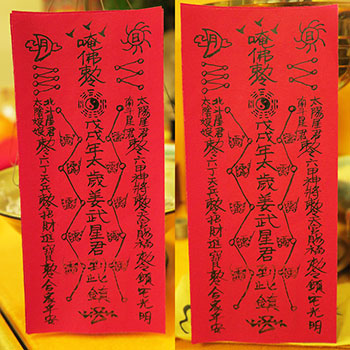 唵佛敕
戊戌年太歲姜武星君到此鎮
太陽星君敕六甲神將敕天官賜福敕令鎮宅光明
南斗星君
北斗星君
太陰娘娘敕六丁天兵敕招財進寶敕合家平安
月
唵佛敕
戊戌年太歲姜武星君到此鎮
太陽星君敕六甲神將敕天官賜福敕令鎮宅光明
南斗星君
北斗星君
太陰娘娘敕六丁天兵敕招財進寶敕合家平安
月